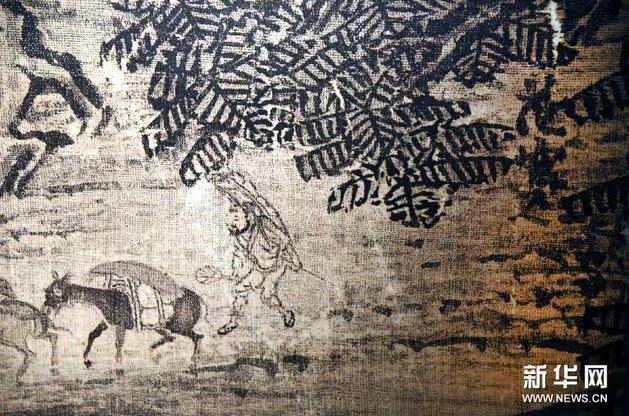 新华网
WWW.NEWS.CN